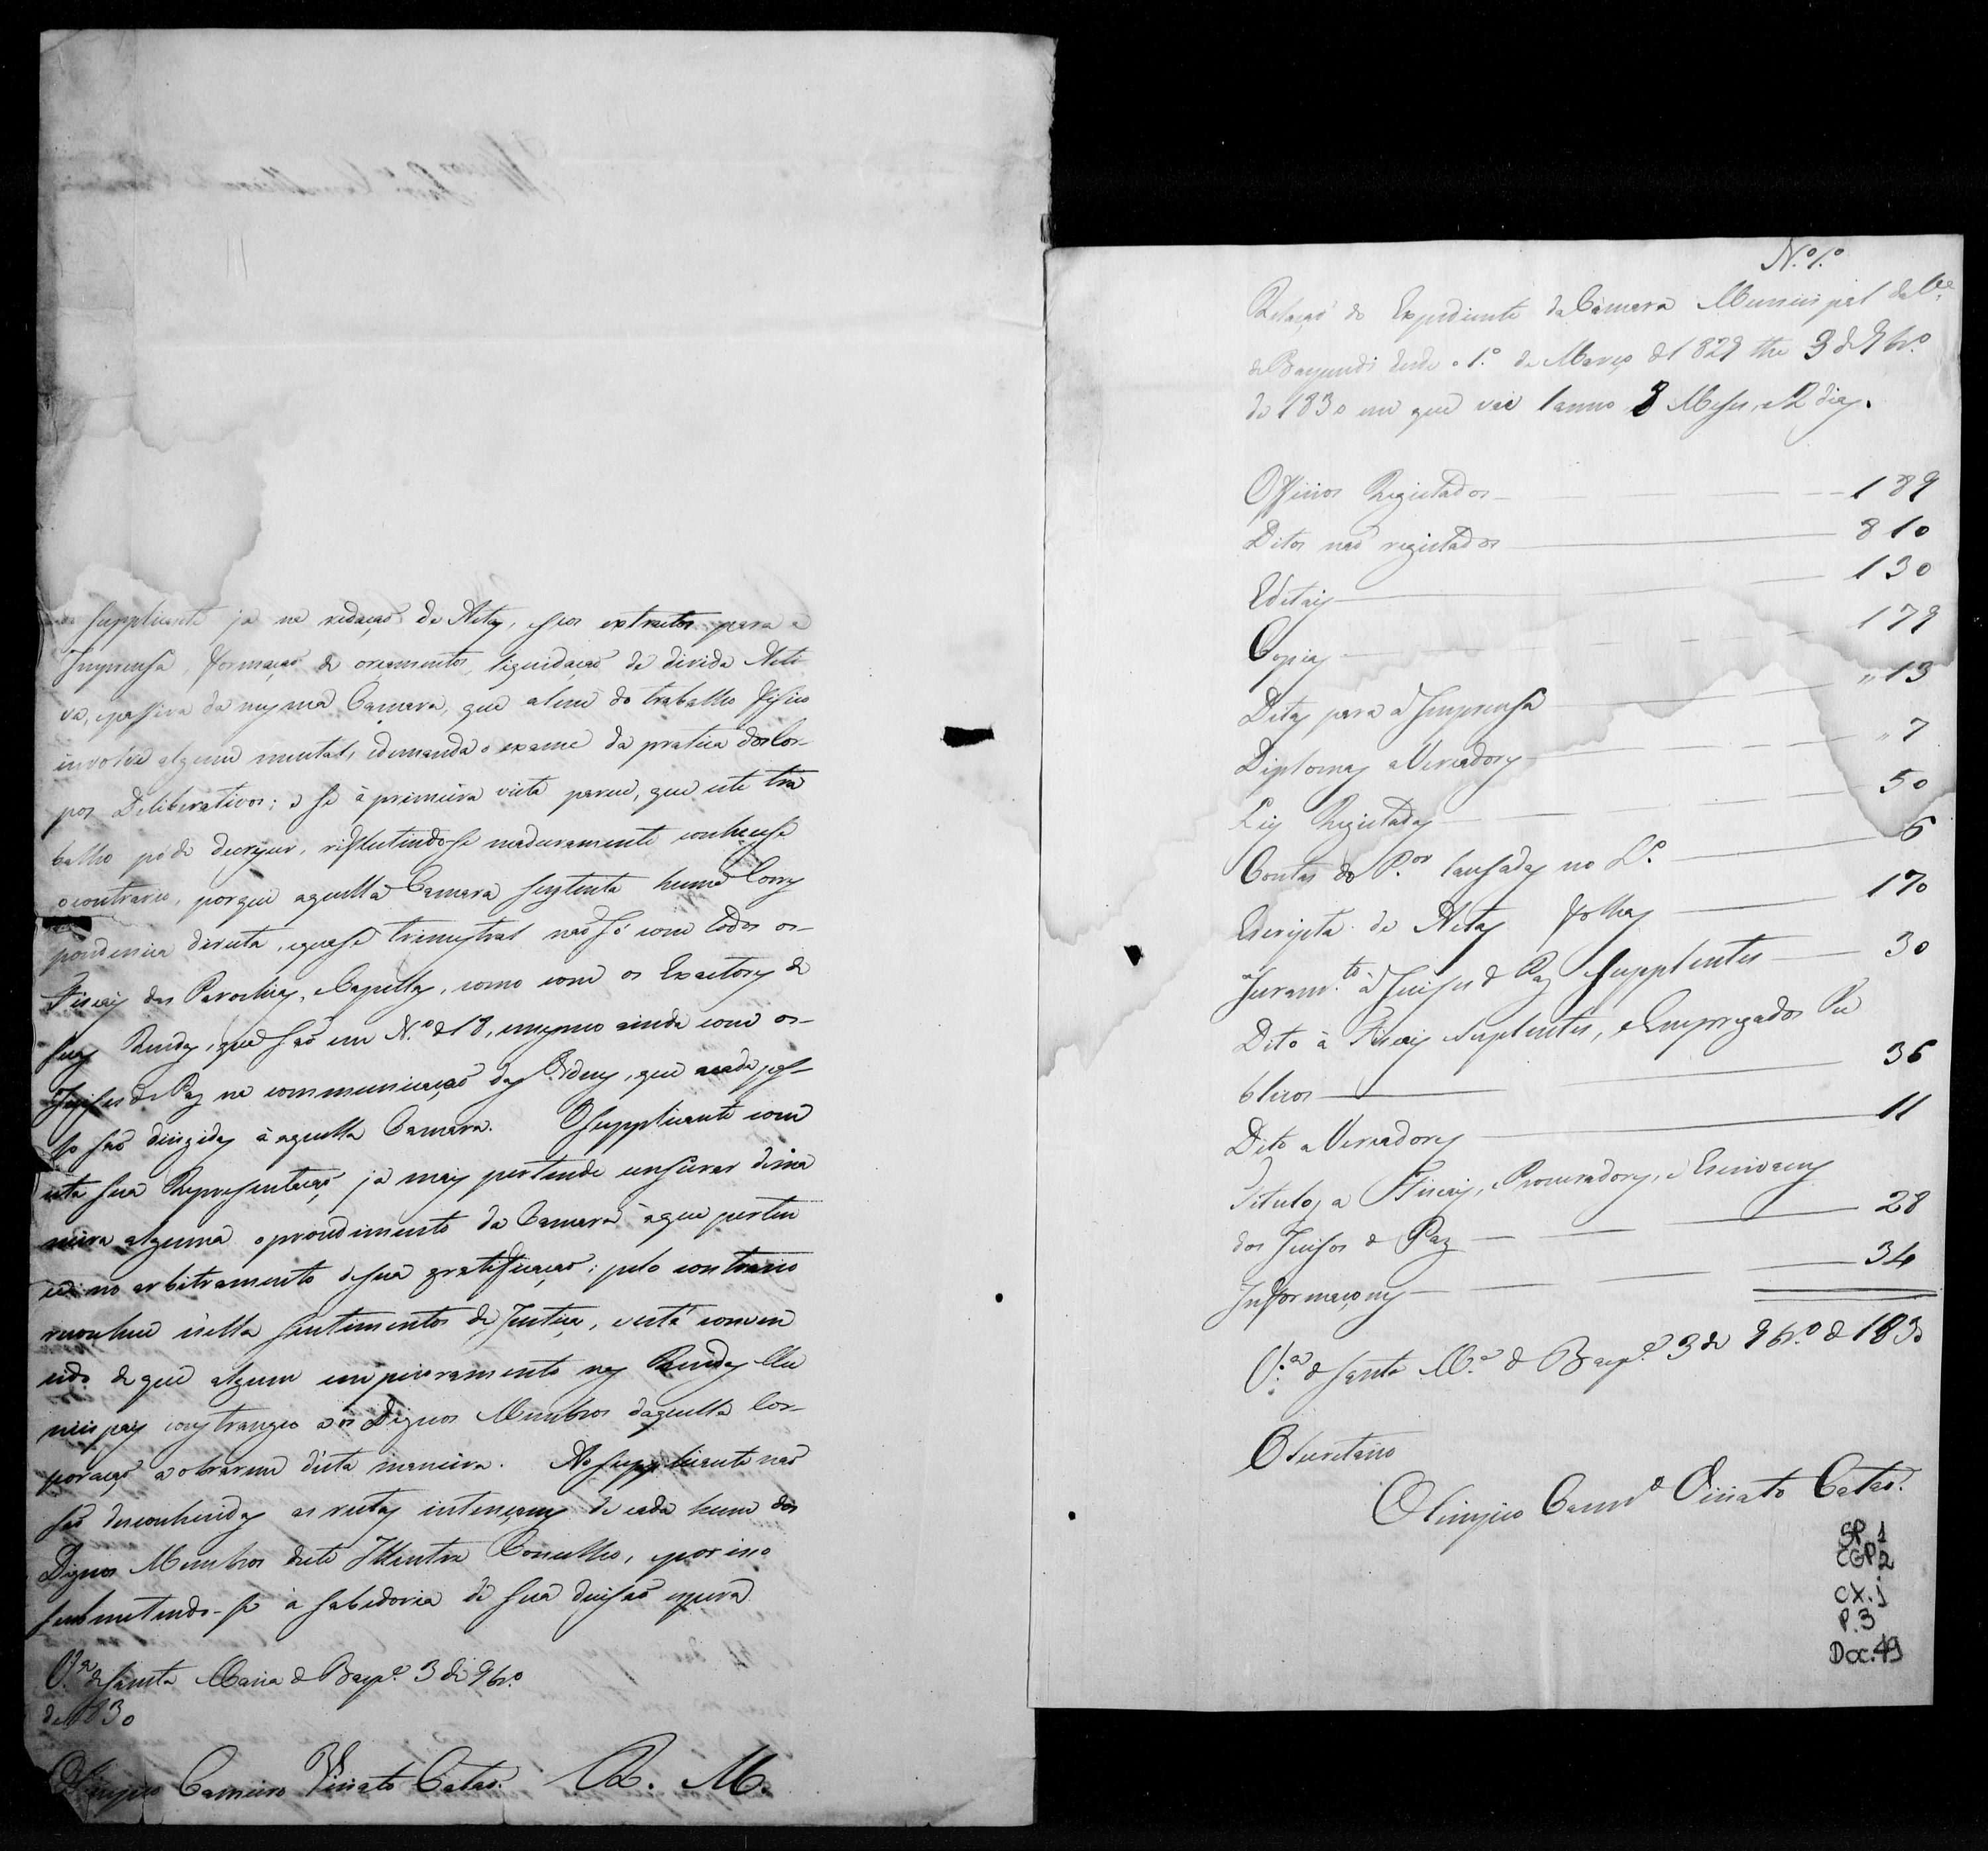 Supplicante já na redação de Actas, seos extractos para a
Imprensa, formação de orçamentos, liquidação da divida Acti
va, epassiva da mesma Camara, que alem do trabalho fisico
involve algum mental, edemanda o exame da pratica dos Cor-
pos Deliberativos; e se à primeira vista parece, que este tra
balho póde decrescer, reflectindo-se maduramente conhece-se
ocontrario, porque aquella Camara sustenta huma Corres
pondencia directa, equase trimestral não só com todos os
Fiscaes das Parochias, eCapellas, como com os Exactores de
suas Rendas, que são em N.º de 18, emesmo ainda com os
Juises de Paz na communicação das Ordens, que acada pas-
so são dirigidas à aquella Camara. OSupplicante com
esta sua Representação já mais pertende censurar de ma
neira alguma oprocedimento da Camara àque perten
ceo no arbitramento de sua gratificação; pelo contrario
reconhece n'ella sentimentos de Justiça, eestá conven
cido de que algum empioramento nas Rendas Mu
nicipaes constrangeo aos Dignos Membros daquella Cor-
poração aobrarem d'esta maneira. Ao Supplicante não
são desconhecidas as rectas intenções de cada hum dos
Dignos Membros deste Illustre Conselho, epor isso
submetendo-se à sabedoria de sua decisão espera
V.ª de Santa Maria de Baep.e 3 de 9br.o
de 1830
Olimpio Carneiro Viriato Catão. E. R. M.
N.º 1.º
Relação do Expediente da Câmara Municipal da V.ª
de Baependi desde o 1.º de Março de 1829 the 3 de 9br.o
de 1830 em que vai 1 anno 8 Meses, e 2 dias.
Officios Registados 189
Ditos não registados 810
Editaes 130
Copias 179
Ditas para a Imprensa 13
Diplomas a Vereadores 7
Leis Registadas 50
Contas do P.or lansadas no L.º 6
Escripta de Actas folhas 170
Juram.to à Juises de Paz e Supplentes 30
Dito à Fiscaes Suplentes, e Empregados Pu
blicos 36
Dito a Vereadores 11
Titulos a Fiscaes, Procuradores, e Escrivaens
dos Juisos de Paz 28
Informaçoens 34
V.ª de Santa M.ª de Baep.e 3 de 9br.o de 1830
O Secretario
Olimpio Carnr.o Viriato Catão.
SP 1
CGP 2
CX. 1
P. 3
Doc. 49